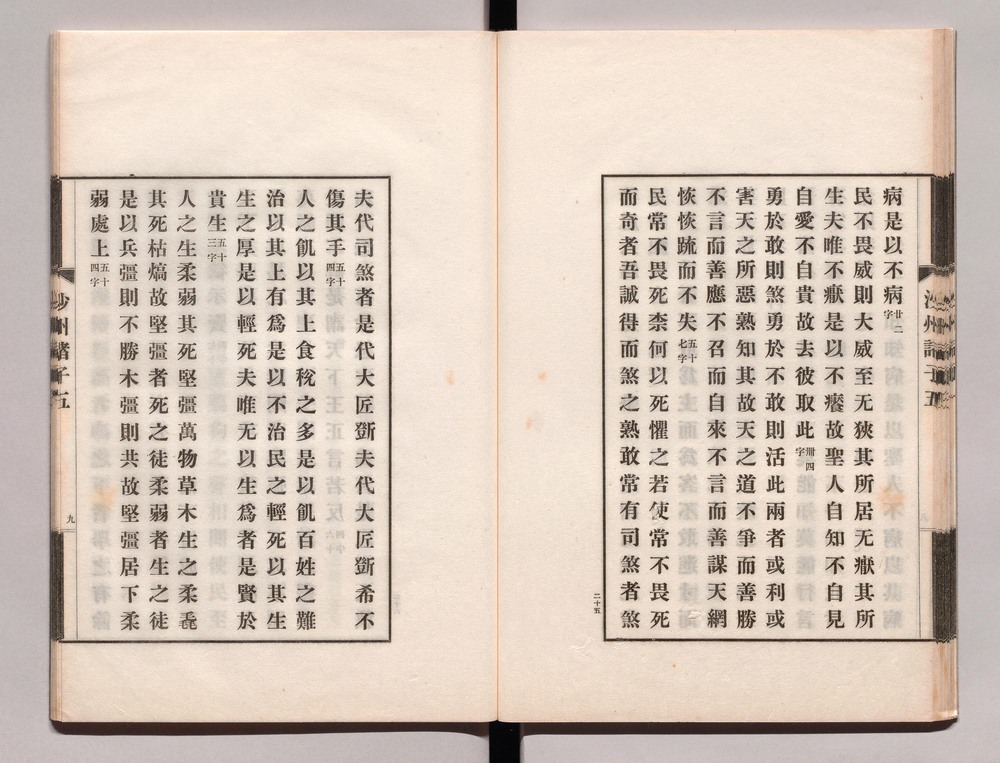 病是以不病廿二字
民不畏威則大威至无狹其所居无猒其所
生夫唯不猒是以不猒故聖人自知不自見
自愛不自貴故去彼取此卌四字
勇於敢則煞勇於不敢則活此兩者或利或
害天之所惡熟知其故天之道不爭而善勝
不言而善應不召而自來不言而善謀天網
恢恢䟽而不失五十七字
民常不畏死柰何以死懼之若使常不畏死
而奇者吾誠得而煞之熟敢常有司煞者煞
二十五
夫代司煞者是代大匠斲夫代大匠斲希不
傷其手五十四字
人之飢以其上食稅之多是以飢百姓之難
治以其上有爲是以不治民之輕死以其生
生之厚是以輕死夫唯无以生爲者是賢於
貴生五十三字
人之生柔弱其死堅彊萬物草木生之柔毳
其死枯槁故堅彊者死之徒柔弱者生之徒
是以兵彊則不勝木彊則共故堅彊居下柔
弱處上五十四字
沙州諸子五
九